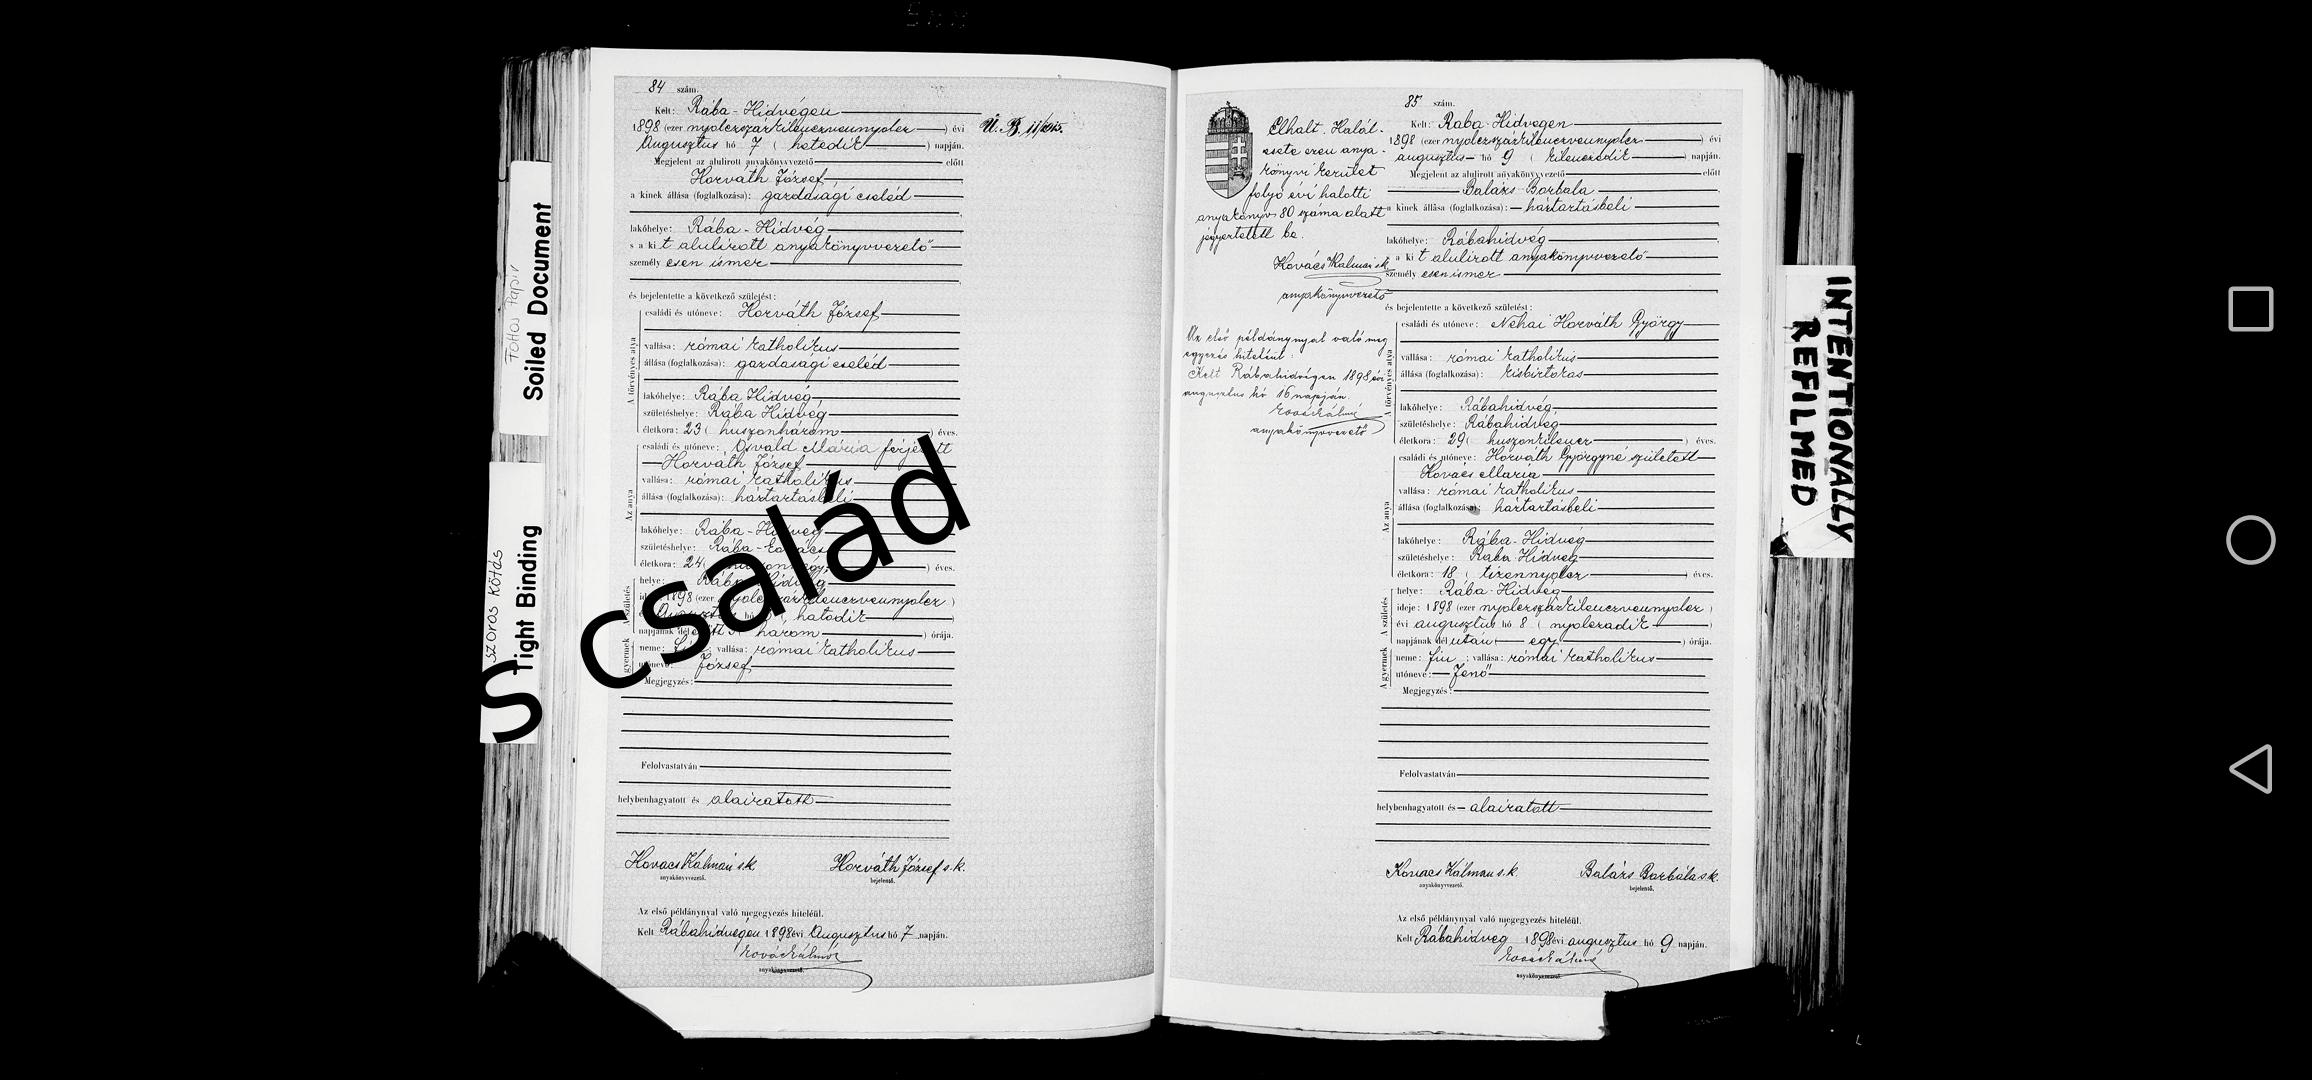 84 szám.
Kelt: Rába-Hidvégen
1898 (ezer nyolczszázkilenczvennyolcz) évi
Augusztus hó 7 ( hetedik ) napján.
Megjelent az alulirott anyakönyvvezető előtt
Horváth József
a kinek állása (foglalkozása): gazdasági cseléd
lakóhelye: Rába-Hidvég
s a kit alulirott anyakönyvvezető
személyesen ismer
és bejelentette a következő születést:
A törvényes atya
családi és utóneve: Horváth József
vallása: római katholikus
állása (foglalkozása): gazdasági cseléd
lakóhelye: Rába Hidvég
születéshelye: Rába Hidvég
életkora: 23 ( huszonhárom ) éves.
Az anya
családi és utóneve: Osvald Mária férjezett
Horváth József
vallása: római katholikus
állása (foglalkozása): háztartásbeli
lakóhelye: Rába-Hidvég
születéshelye: Rába-
életkora: 24 ( ) éves.
A születés
helye: Rába Hidvég
ideje: 1898 (ezer nyolczszázkilenczvennyolcz )
évi Augusztus hó ( hatodik )
napjának délelőtt három órája.
A gyermek
neme: ; vallása: római katholikus
utóneve: József
Megjegyzés:
Felolvastatván
helybenhagyatott és aláiratott
Kovács Kálmán s.k.
anyakönyvvezető.
Horváth József s.k.
bejelentő.
Az első példánynyal való megegyezés hiteléül.
Kelt Rábahidvégen 1898 évi Augusztus hó 7 napján.
Kovács Kálmán
anyakönyvvezető.
U. B. 11/1915.
Elhalt. Halál-
esete ezen anya-
könyvi kerület
folyó évi halotti
anyakönyv 80 száma alatt
jegyeztetett be.
Kovács Kálmán sk
anyakönyvvezető
Az első példánynyal való meg
egyezés hiteléül:
Kelt Rábahidvégen 1898 évi
augusztus hó 16 napján.
Kovács Kálmán
anyakönyvvezető
85 szám.
Kelt: Rába-Hidvegen
1898 (ezer nyolczszázkilenczvennyolcz ) évi
augusztus hó 9 ( kilenczedik ) napján.
Megjelent az alulirott anyakönyvvezető előtt
Balázs Borbála
a kinek állása (foglalkozása): háztartásbeli
lakóhelye: Rábahidvég
s a kit alulirott anyakönyvvezető
személyesen ismer
és bejelentette a következő születést:
A törvényes atya
családi és utóneve: Néhai Horváth György
vallása: római katholikus
állása (foglalkozása): kisbirtokos
lakóhelye: Rábahidvég
születéshelye: Rábahidvég
életkora: 29 ( huszonkilencz ) éves.
Az anya
családi és utóneve: Horváth Györgyné született
Kovács Mária
vallása: római katholikus
állása (foglalkozása): háztartásbeli
lakóhelye: Rába-Hidvég
születéshelye: Rába-Hidvég
életkora: 18 ( tizennyolcz ) éves.
A születés
helye: Rába-Hidvég
ideje: 1898 (ezer nyolczszázkilenczvennyolcz )
évi augusztus hó 8 ( nyolczadik )
napjának délután egy ) órája.
A gyermek
neme: fiu ; vallása: római katholikus
utóneve: Jenő
Megjegyzés:
Felolvastatván
helybenhagyatott és aláiratott
Kovács Kálmán s.k.
anyakönyvvezető.
Balázs Borbála s.k.
bejelentő.
Az első példánynyal való megegyezés hiteléül.
Kelt Rábahidvég 1898 évi augusztus hó 9 napján.
Kovács Kálmán
anyakönyvvezető.
Foltos Papír
Soiled Document
Szoros Kötés
Tight Binding
INTENTIONALLY
REFILMED
S család